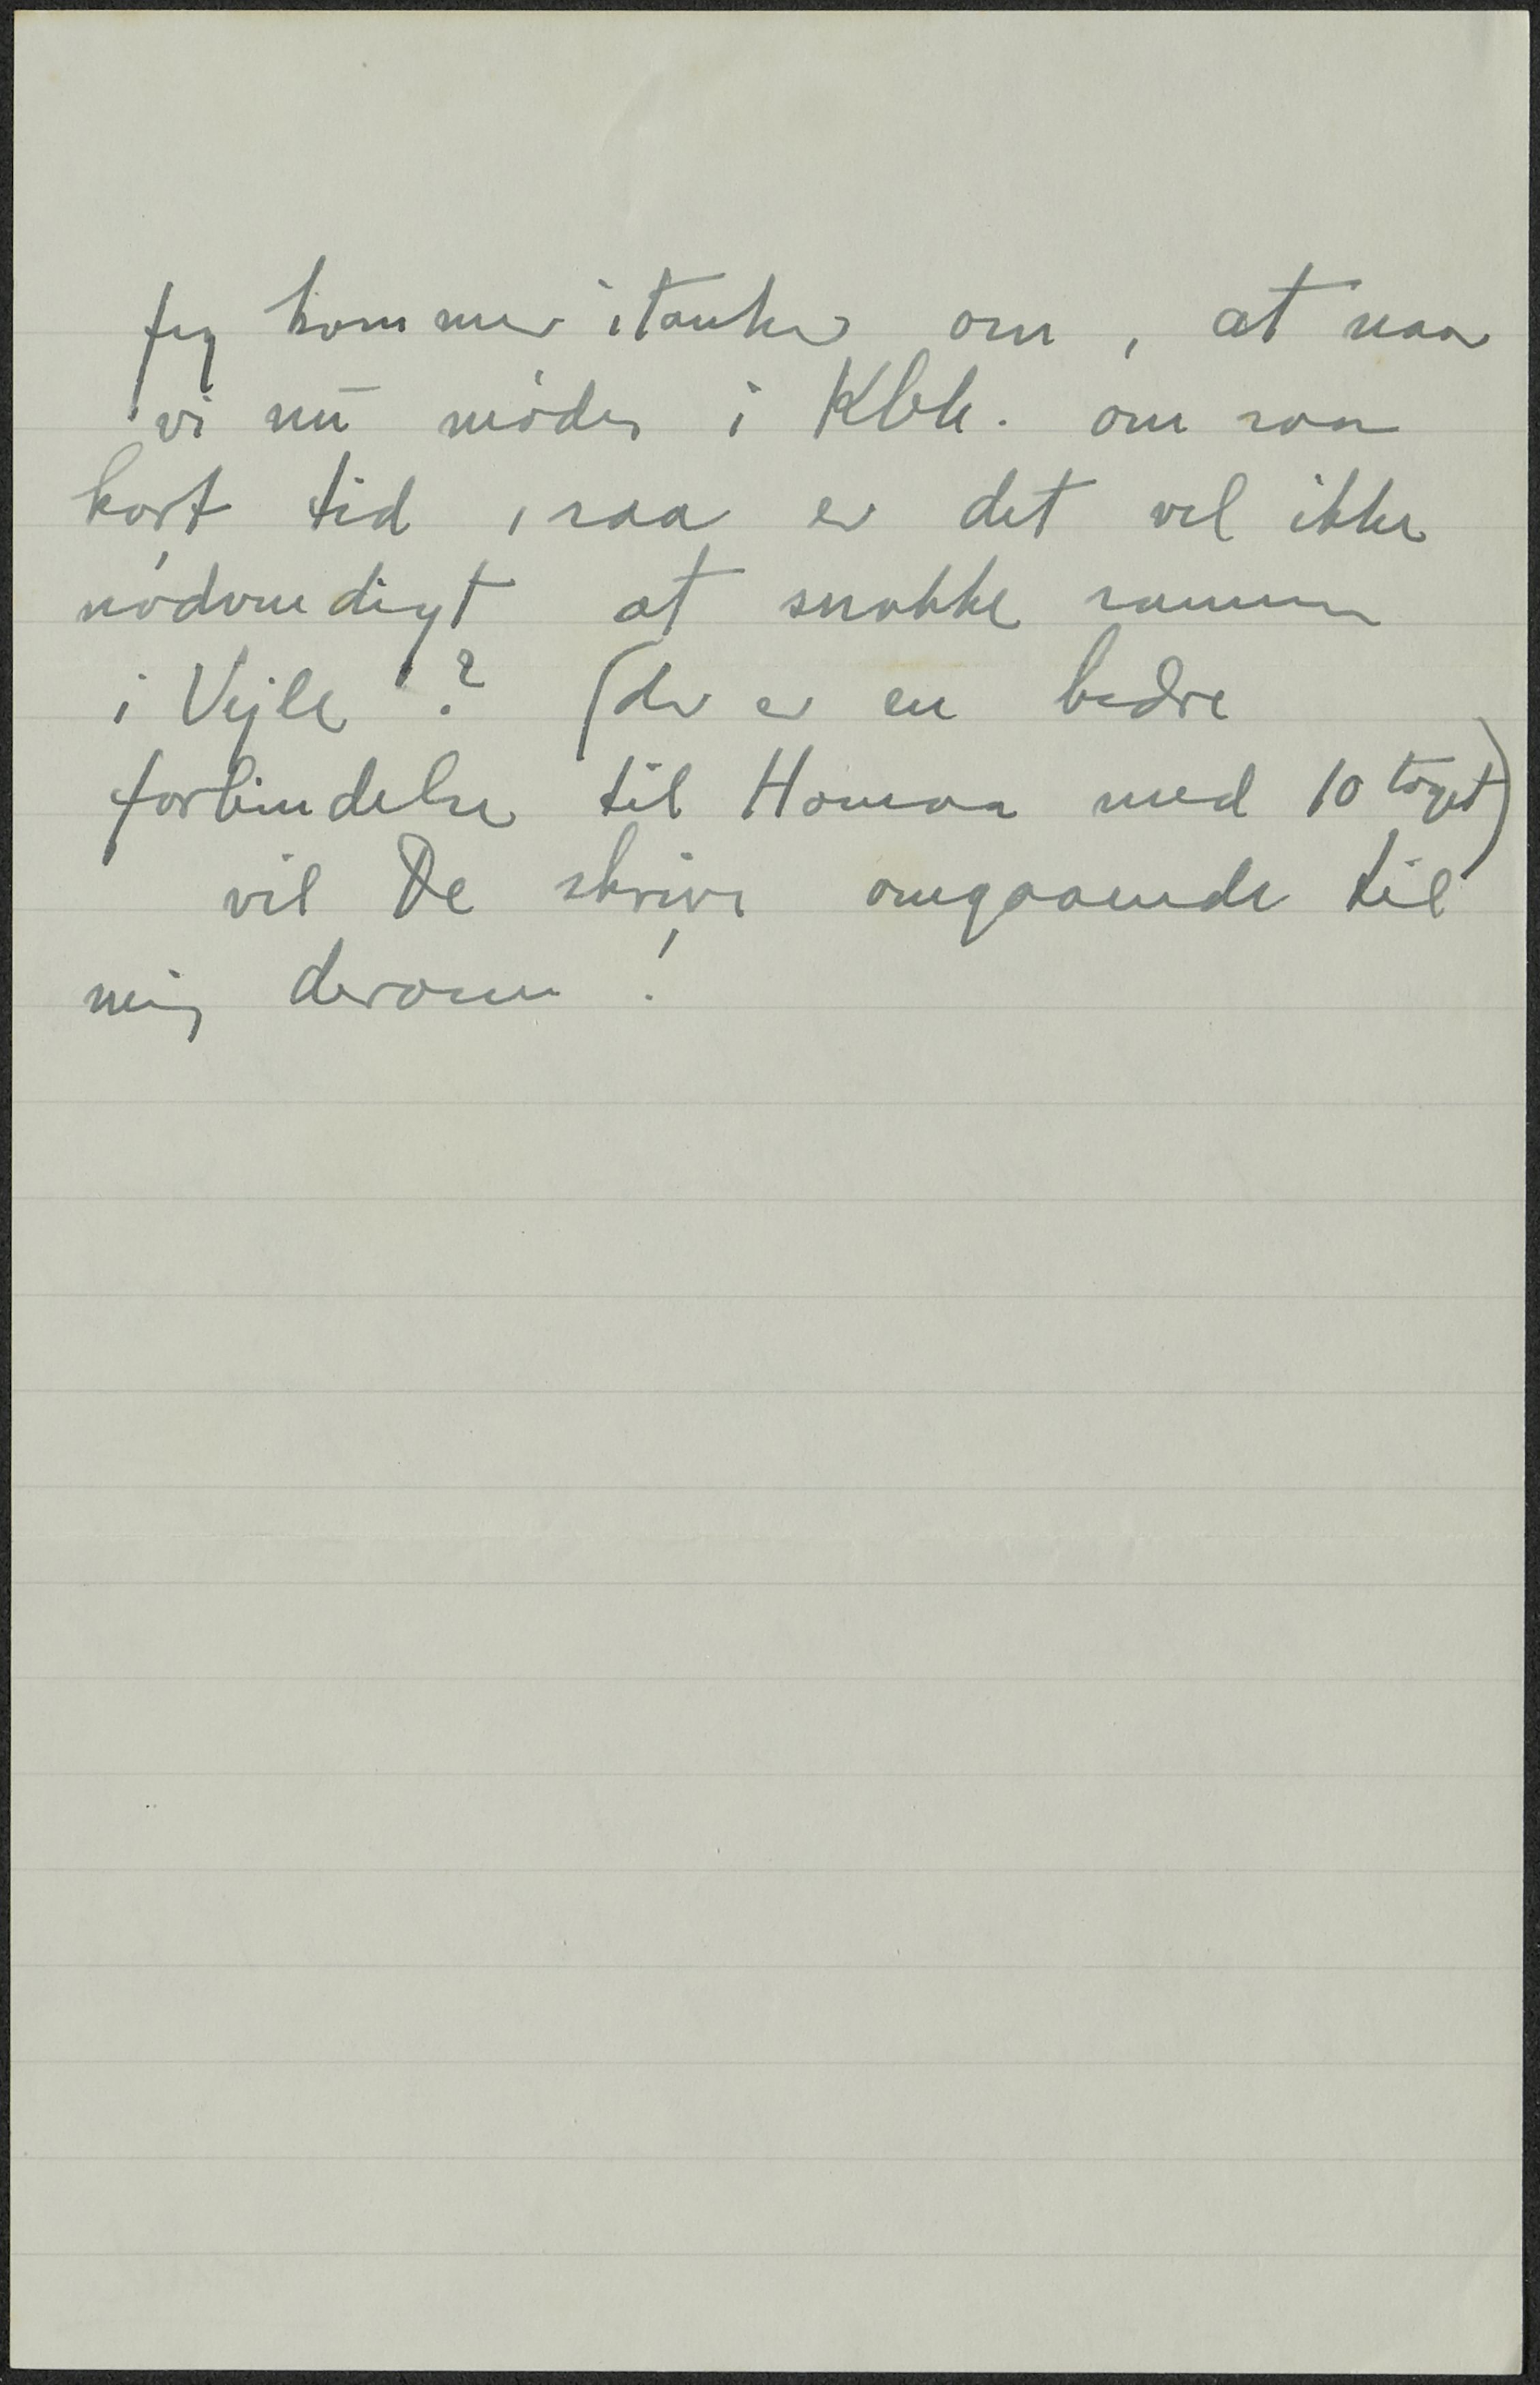 Jeg kommer itanke om, at naar
vi nu mødes i Kbh. om saa
kort tid, saa er det vel ikke
nødvendigt at snakke sammen
i Vejle? (der er en bedre
forbindelse til Hornsaa med 10 toget)
vil De skrive omgaaende til
mig derom!